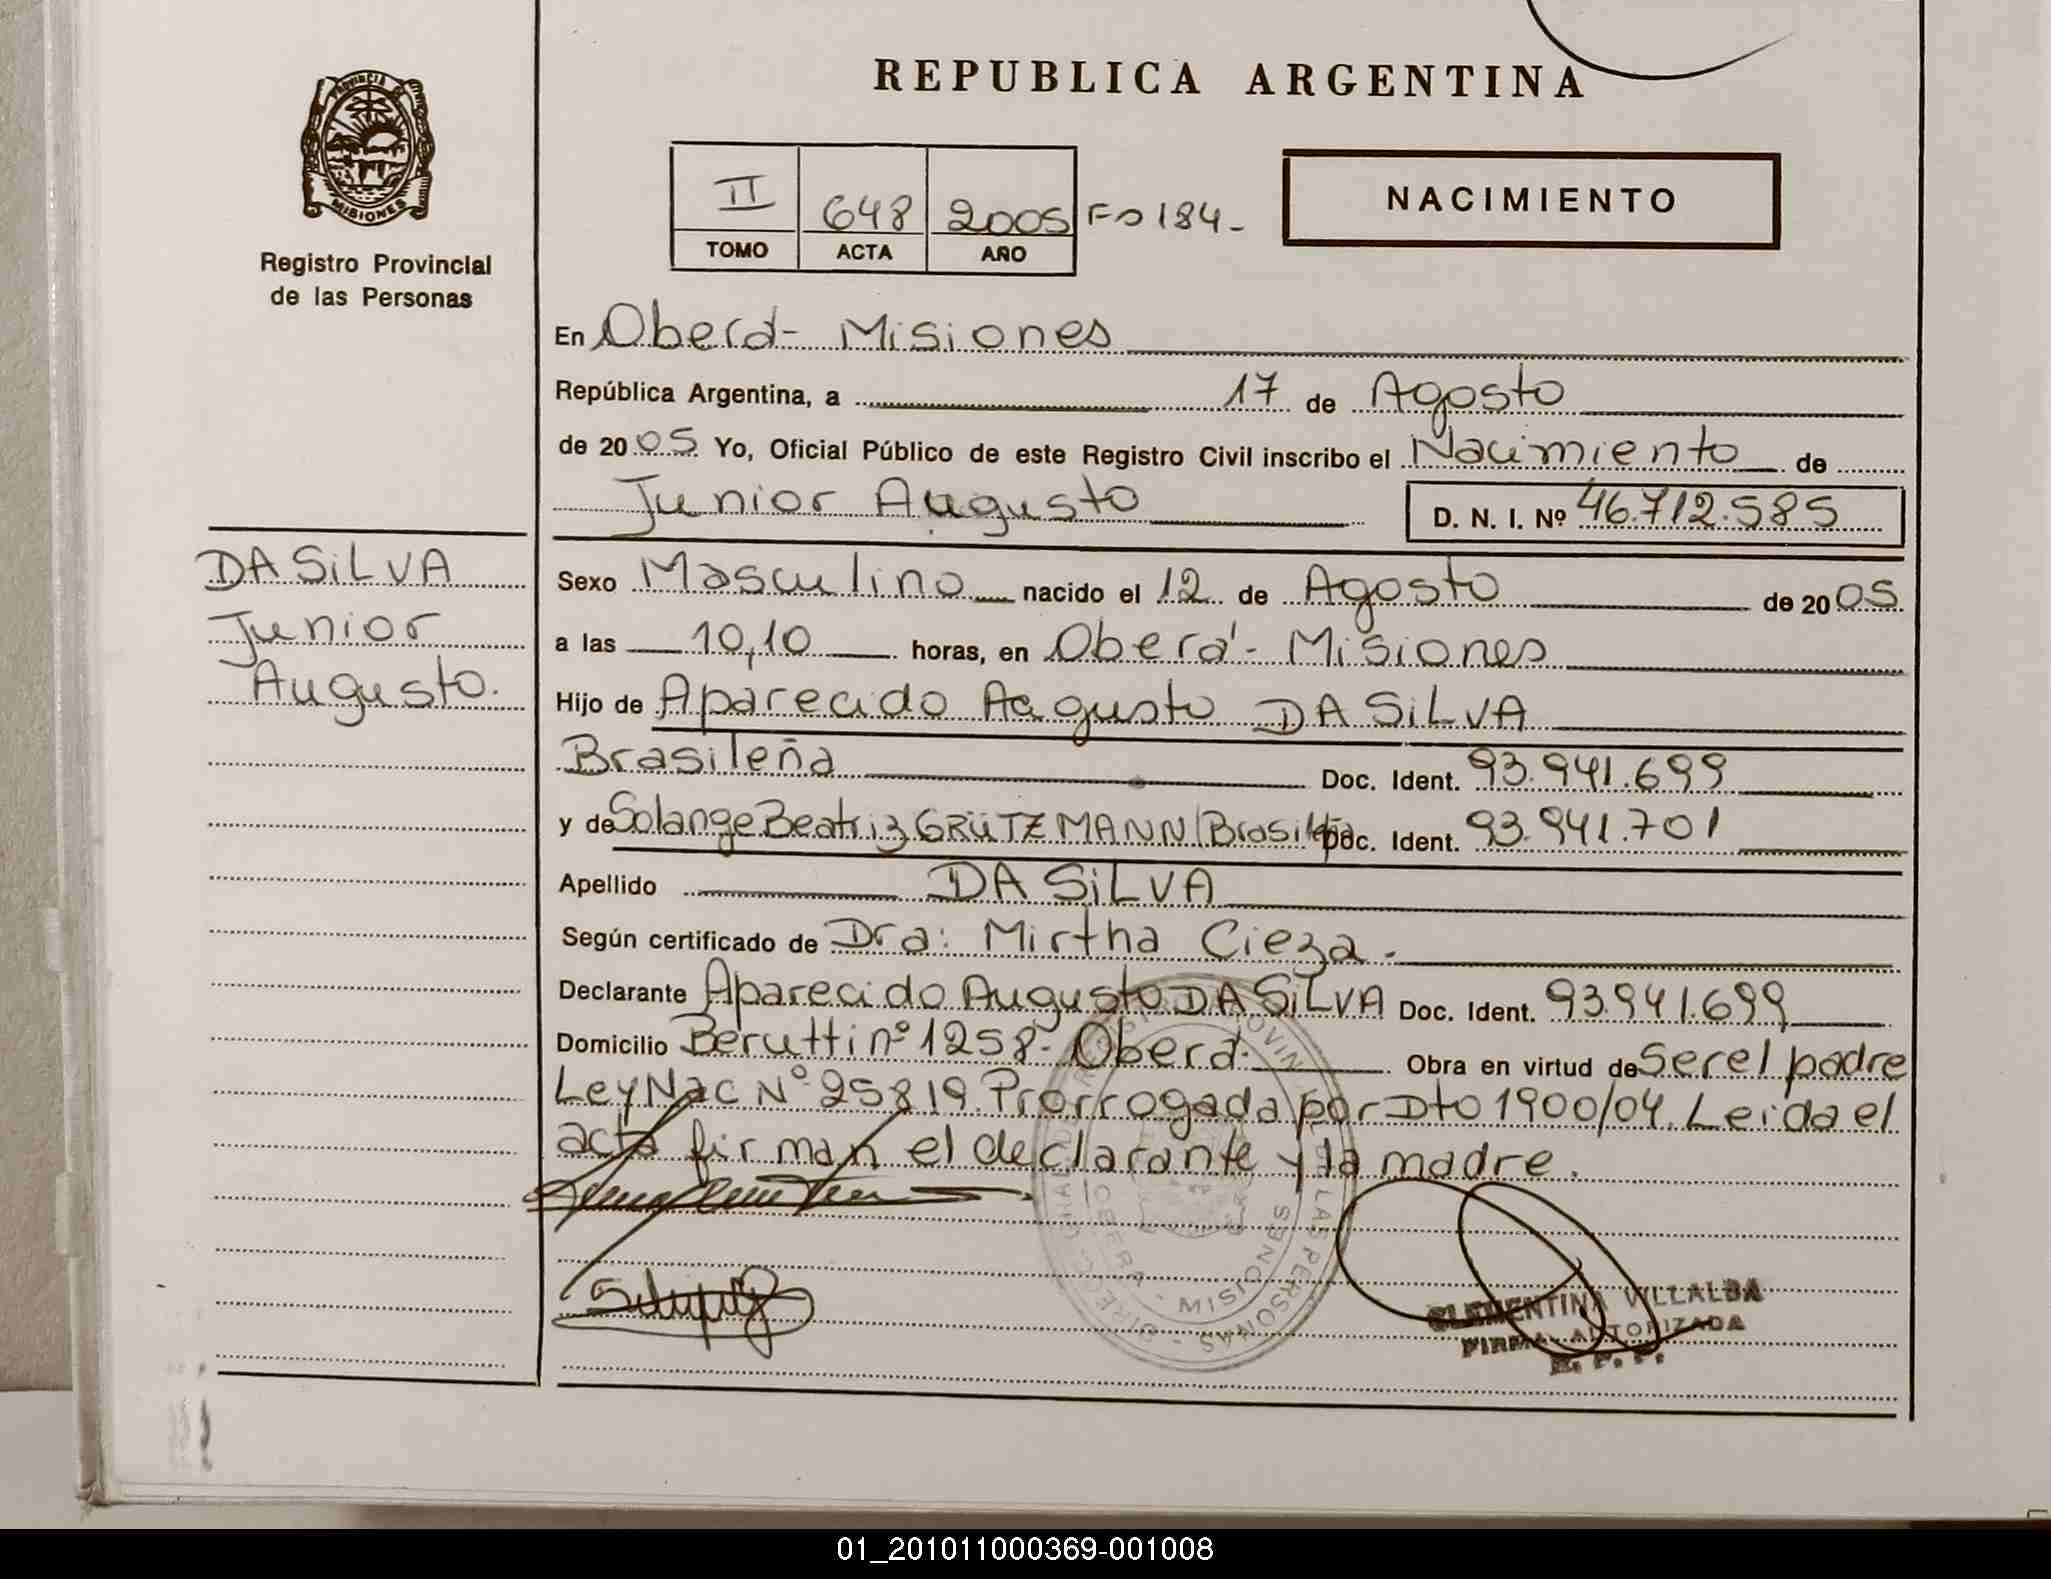 REPUBLICA ARGENTINA
PROVINCIA DE
MISIONES
Registro Provincial
de las Personas
II 648 2005 Fo 184-
TOMO ACTA AÑO
NACIMIENTO
En Oberá - Misiones
República Argentina, a 17 de Agosto
de 2005 Yo, Oficial Público de este Registro Civil inscribo el Nacimiento de
Junior Augusto D. N. I. Nº 46.712.585
DA SiLVA
Junior
Augusto.
Sexo Masculino nacido el 12 de Agosto de 2005
a las 10,10 horas, en Oberá - Misiones
Hijo de Aparecido Augusto DA SiLVA
Brasileña Doc. Ident. 93.941.699
y de Solange Beatriz GRüTZMANN/Brasileña Doc. Ident. 93.941.701
Apellido DA SiLVA
Según certificado de Dra: Mirtha Cieza.
Declarante Aparecido Augusto DA SiLVA Doc. Ident. 93.941.699
Domicilio Berutti nº 1258- Oberá- Obra en virtud de Ser el padre
Ley Nac Nº 25819. Prorrogada por Dto 1900/04. Leida el
acta firman el declarante y la madre.
OBERA - MISIONES
LAS PERSONAS
CLEMENTINA VILLALBA
FIRMA AUTORIZADA
R. P. P.
01_201011000369-001008